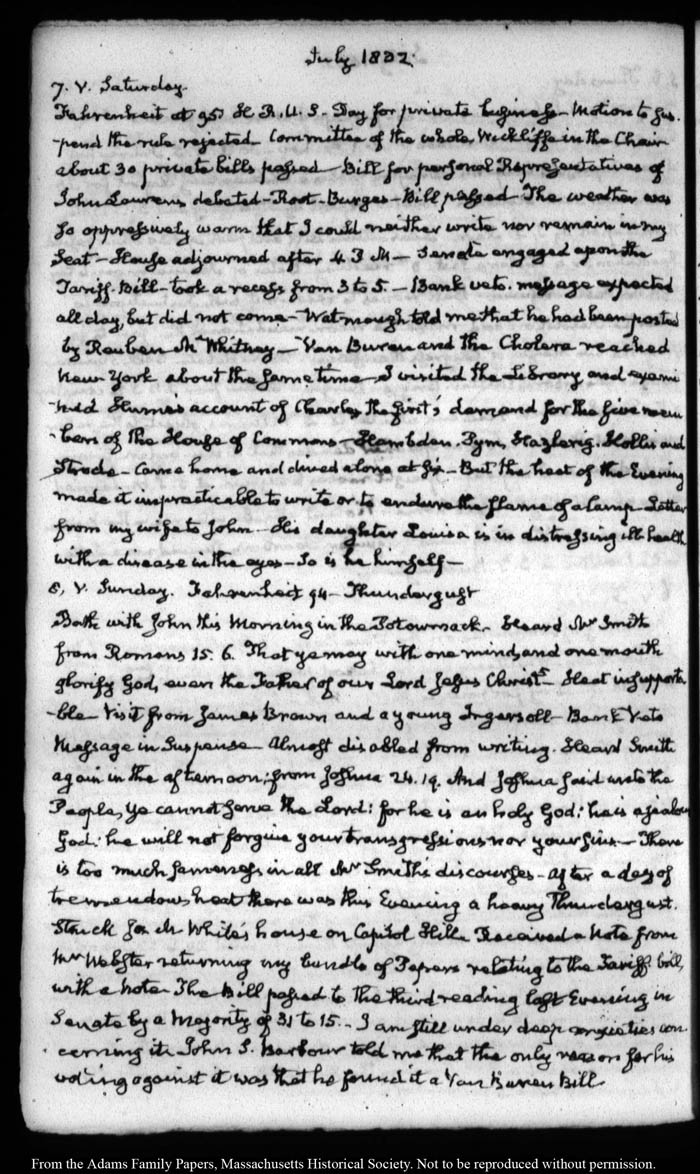 July 1832.
7. V. Saturday.
Fahrenheit at 95. H. R. U. S. Day for private business – Motion to sus-
-pend the rule rejected Committee of the whole, Wickliffe in the Chair
about 30 private bills passed – Bill for personal Representatives of
John Laurens debated – Root – Burges – Bill passed The weather was
so oppressively warm that I could neither write nor remain in my
Seat – House adjourned after 4. P M – Senate engaged upon the
Tariff Bill – took a recess from 3 to 5. – Bank veto message expected
all day, but did not come – Watmough told me that he had been posted
by Reuben M. Whitney – Van Buren and the Cholera reached
New York about the same time – I visited the Library and exami
-ned Hume's account of Charles the first's demand for the five mem
-bers of the House of Commons – Hambden. Pym, Hazlerig. Hollis and
Strode – Came home and dined alone at six – But the heat of the Evening
made it impracticable to write or to endure the flame of a lamp Letter
from my wife to John – His daughter Louisa is in distressing ill health
with a disease in the eyes – So is he himself –
8, V. Sunday. Fahrenheit 94 – Thundergust
Bath with John this Morning in the Potowmack – Heard Mr Smith
from Romans 15. 6. That ye may with one mind, and one mouth
glorify God, even the Father of our Lord Jesus Christ – Heat insupporta
-ble Visit from James Brown and a young Ingersoll – Bank Veto
Message in Suspense Almost disabled from writing. Heard Smith
again in the afternoon; from Joshua 24. 19. And Joshua said unto the
People, Ye cannot serve the Lord: for he is an holy God: he is a jealous
God: he will not forgive your transgressions nor your sins – There
is too much sameness in all Mr Smith's discourses – After a day of
tremendous heat there was this Evening a heavy Thundergust.
Struck M White's house on Capitol Hill. Received a Note from
Mr Webster returning my bundle of Papers relating to the Tariff bill,
with a Note The Bill passed to the third reading last Evening in
Senate by a Majority of 31 to 15. – I am still under deep anxieties con
cerning it. John S. Barbour told me that the only reason for his
voting against it was that he found it a Van Buren Bill.
From the Adams Family Papers, Massachusetts Historical Society. Not to be reproduced without permission.